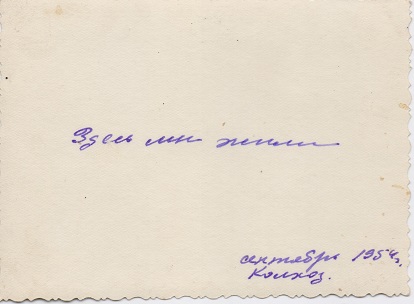 Здесь мы жили
сентябрь 1954г.
Колхоз.